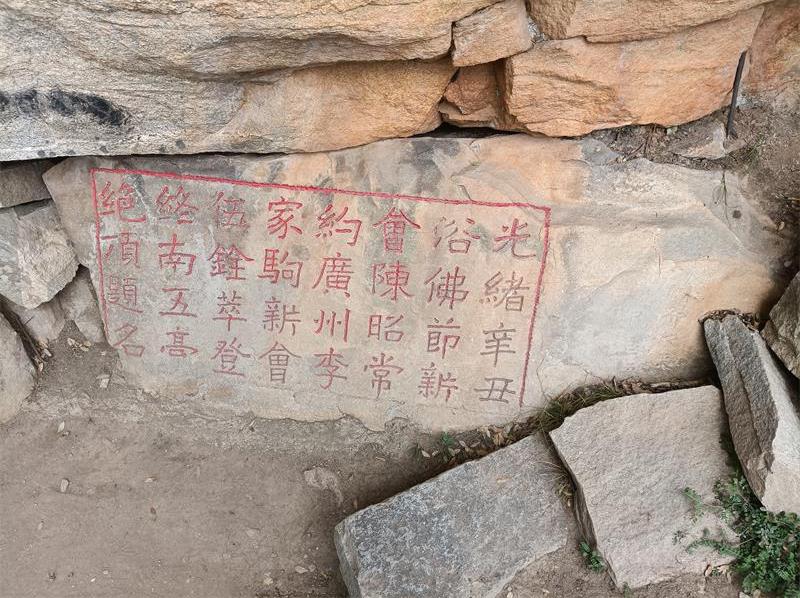 光緒辛丑
浴佛節新
會陳昭常
約廣州李
家駒新會
伍銓萃登
終南五臺
絕頂題名